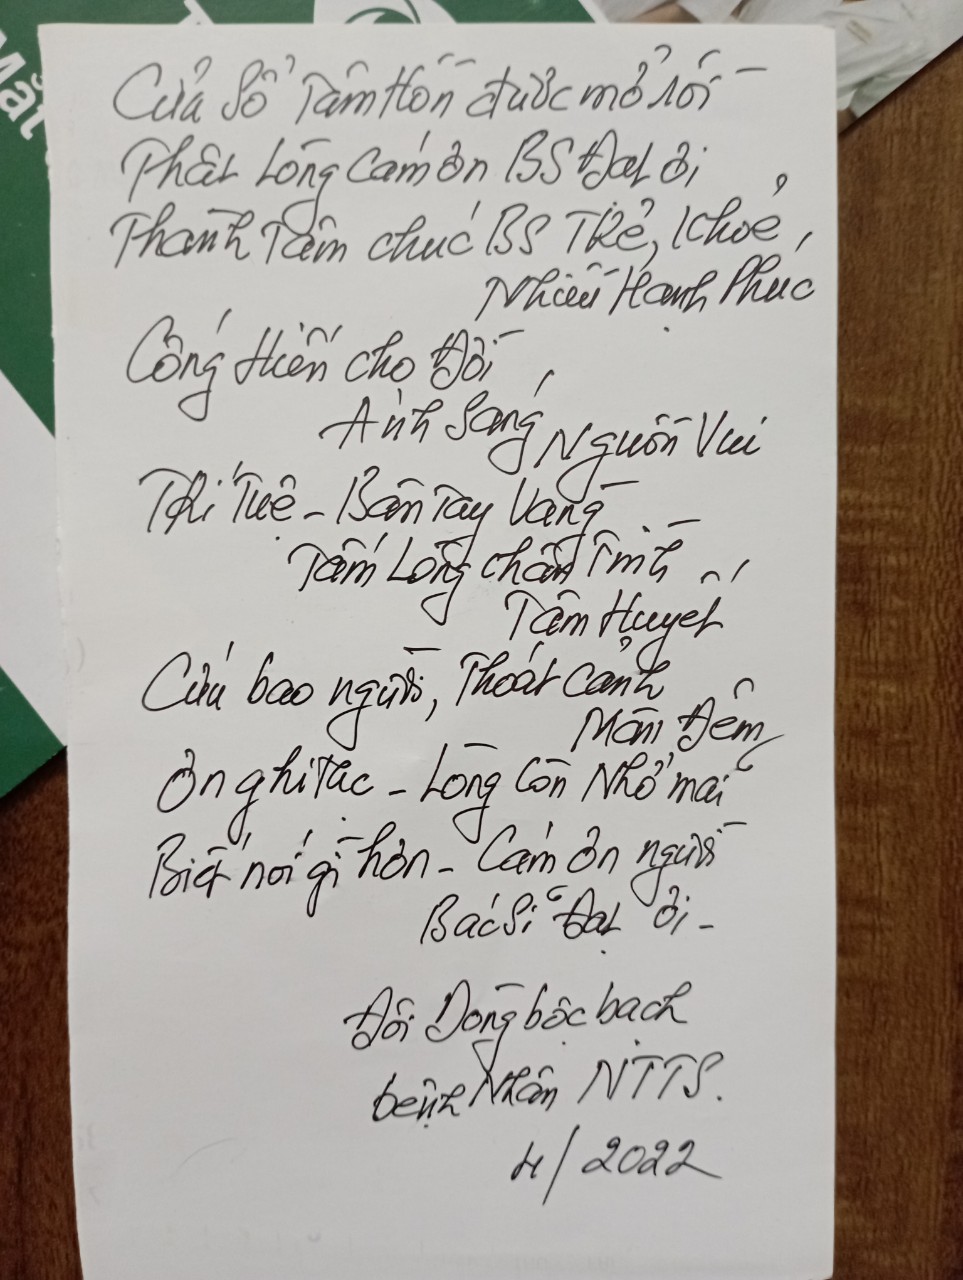 Mắt
Cửa Sổ Tâm Hồn được mở rồi
Thật Lòng Cám ơn BS Đạt ơi
Thành Tâm chúc BS Trẻ, Khoẻ,
Nhiều Hạnh Phúc
Cống Hiến cho Đời
Ánh Sáng, Nguồn Vui
Trí Tuệ - Bàn Tay Vàng
Tấm Lòng chân Tình
Tâm Huyết
Cứu bao người, Thoát cảnh
Màn Đêm
Ơn ghi tạc - Lòng Còn Nhớ mãi
Biết nói gì hơn - Cám ơn người
Bác Sĩ Đạt ơi -
Đôi Dòng bộc bạch
bệnh Nhân NTTS.
4/2022